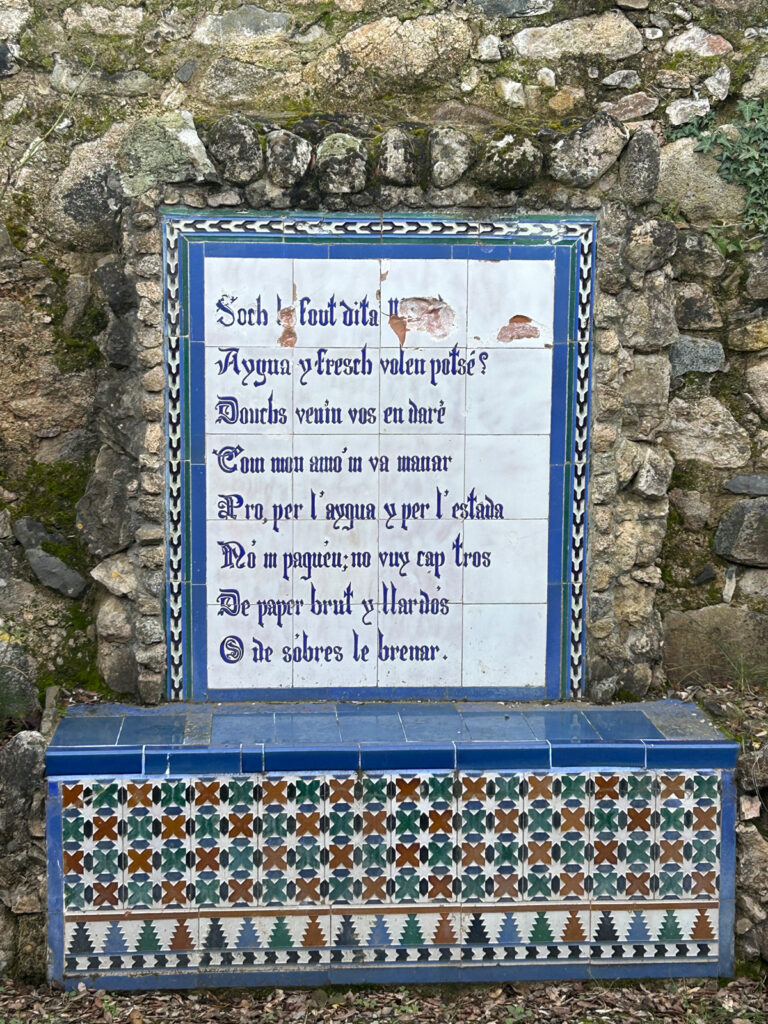 Soch font dita
Aygua y fresch volen potsé?
Donchs veniu vos en daré
Com mon amo'm va manar
Pro, per l'aygua y per l'estada
No'm paguéu; no vuy cap tros
De paper brut y llardós
O de sóbres le brenar.